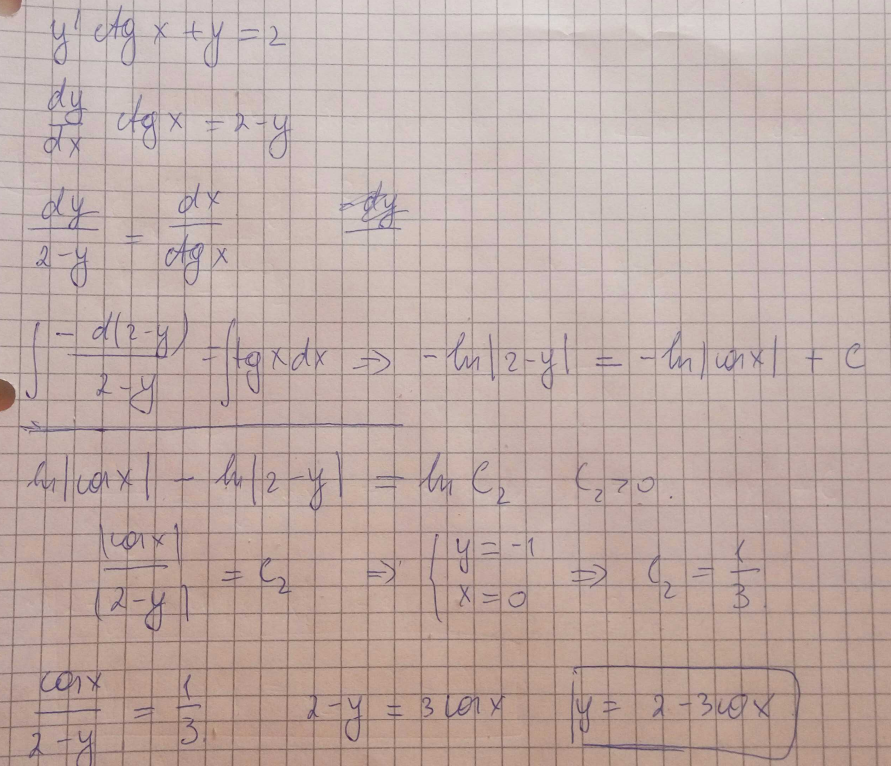 y' ctg x + y = 2
dy/dx ctg x = 2 - y
dy/(2-y) = dx/(ctg x)
∫ -d(2-y)/(2-y) = ∫ tg x dx ⇒ -ln|2-y| = -ln|cos x| + C
ln|cos x| - ln|2-y| = ln C₂ C₂ > 0.
|cos x|/|2-y| = C₂ ⇒ { y = -1 x = 0 ⇒ C₂ = 1/3
cos x/(2-y) = 1/3. 2-y = 3 cos x y = 2 - 3 cos x